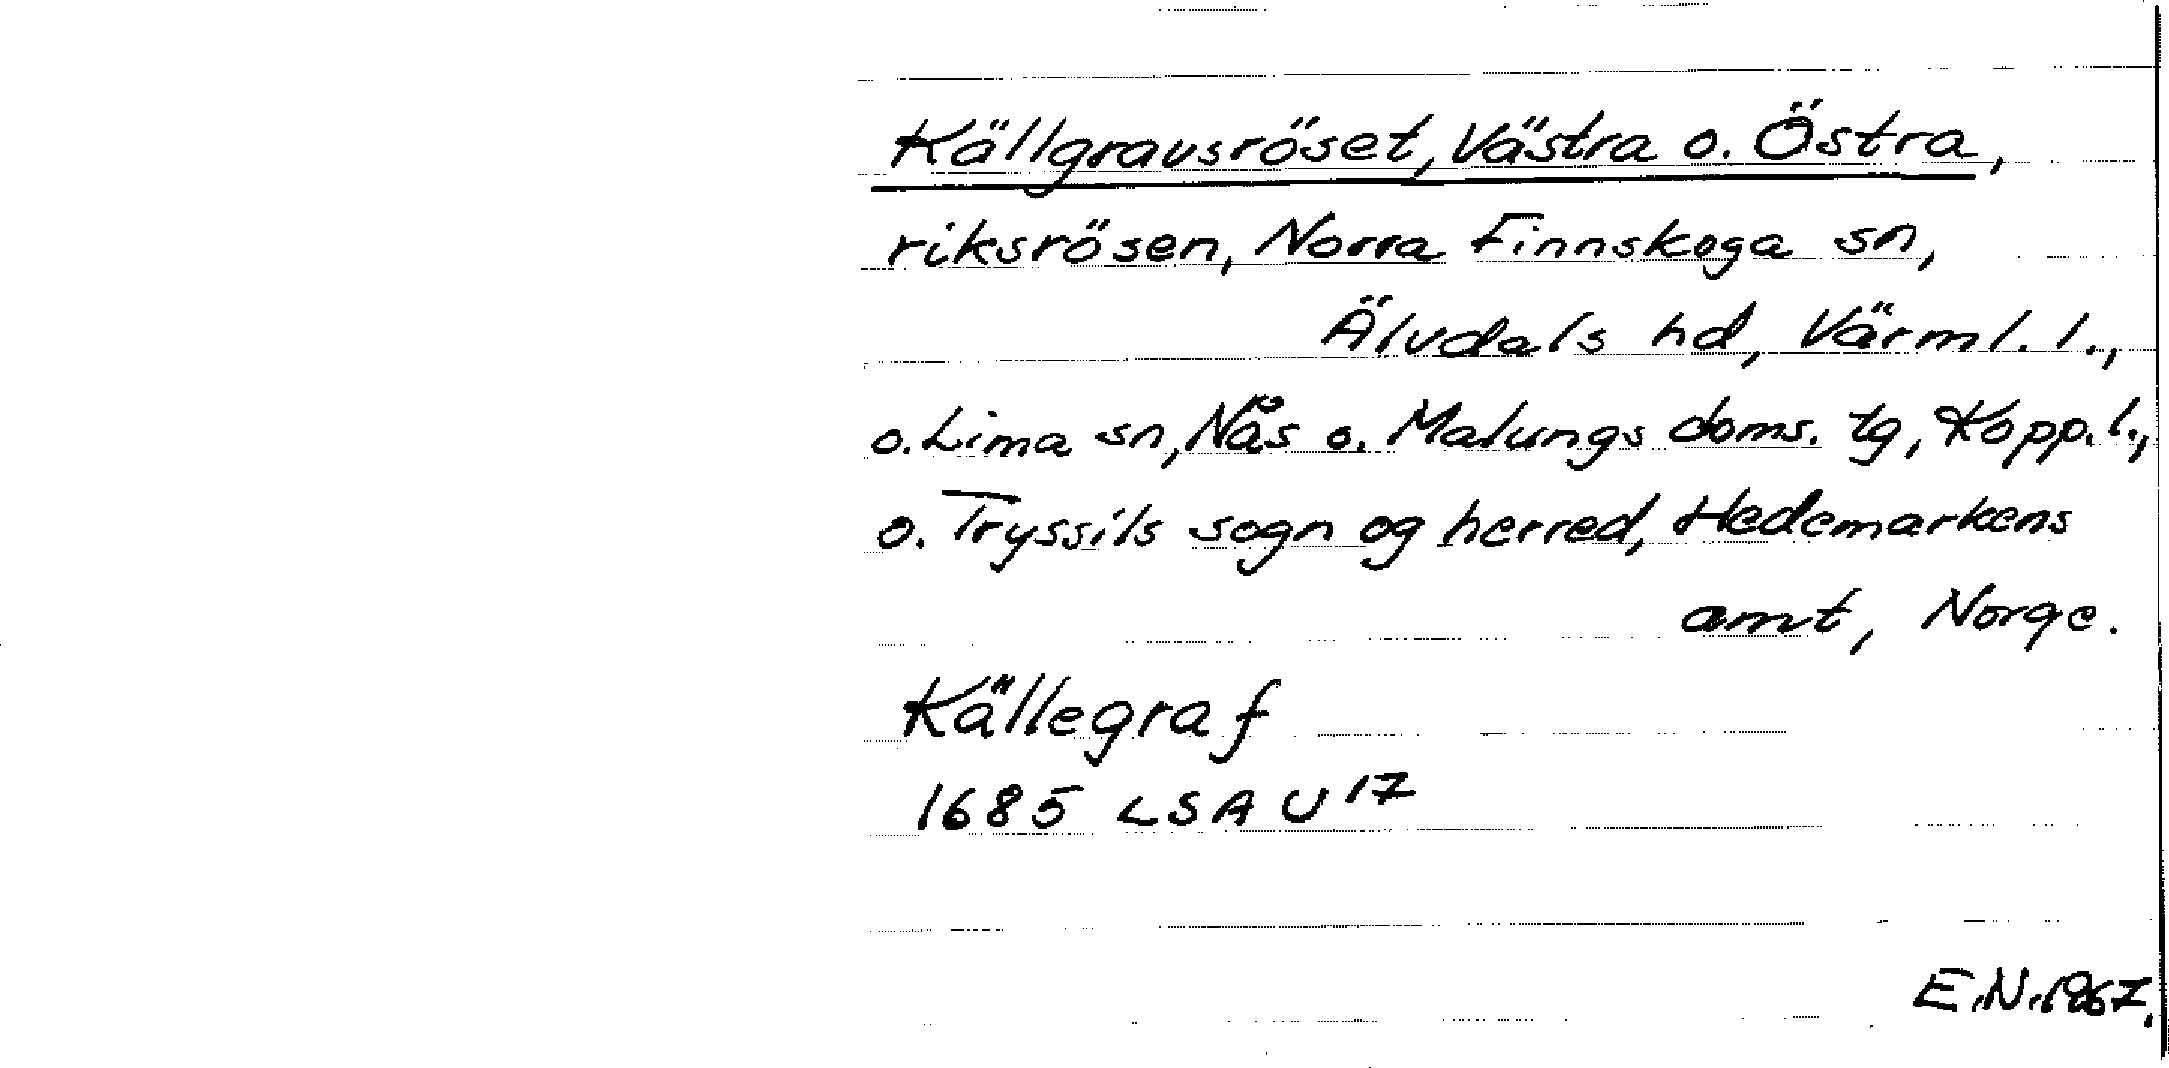 Källgravsröset, Västra o. Östra,
riksrösen, Norra Finnskoga sn,
Älvdals hd, Värml. l.,
o. Lima sn, Nås o. Malungs doms. tg, Kopp. l.,
o. Tryssils sogn og herred, Hedemarkens
amt, Norge.
Källegraf
1685 LSA U 17
E.N. 1967.